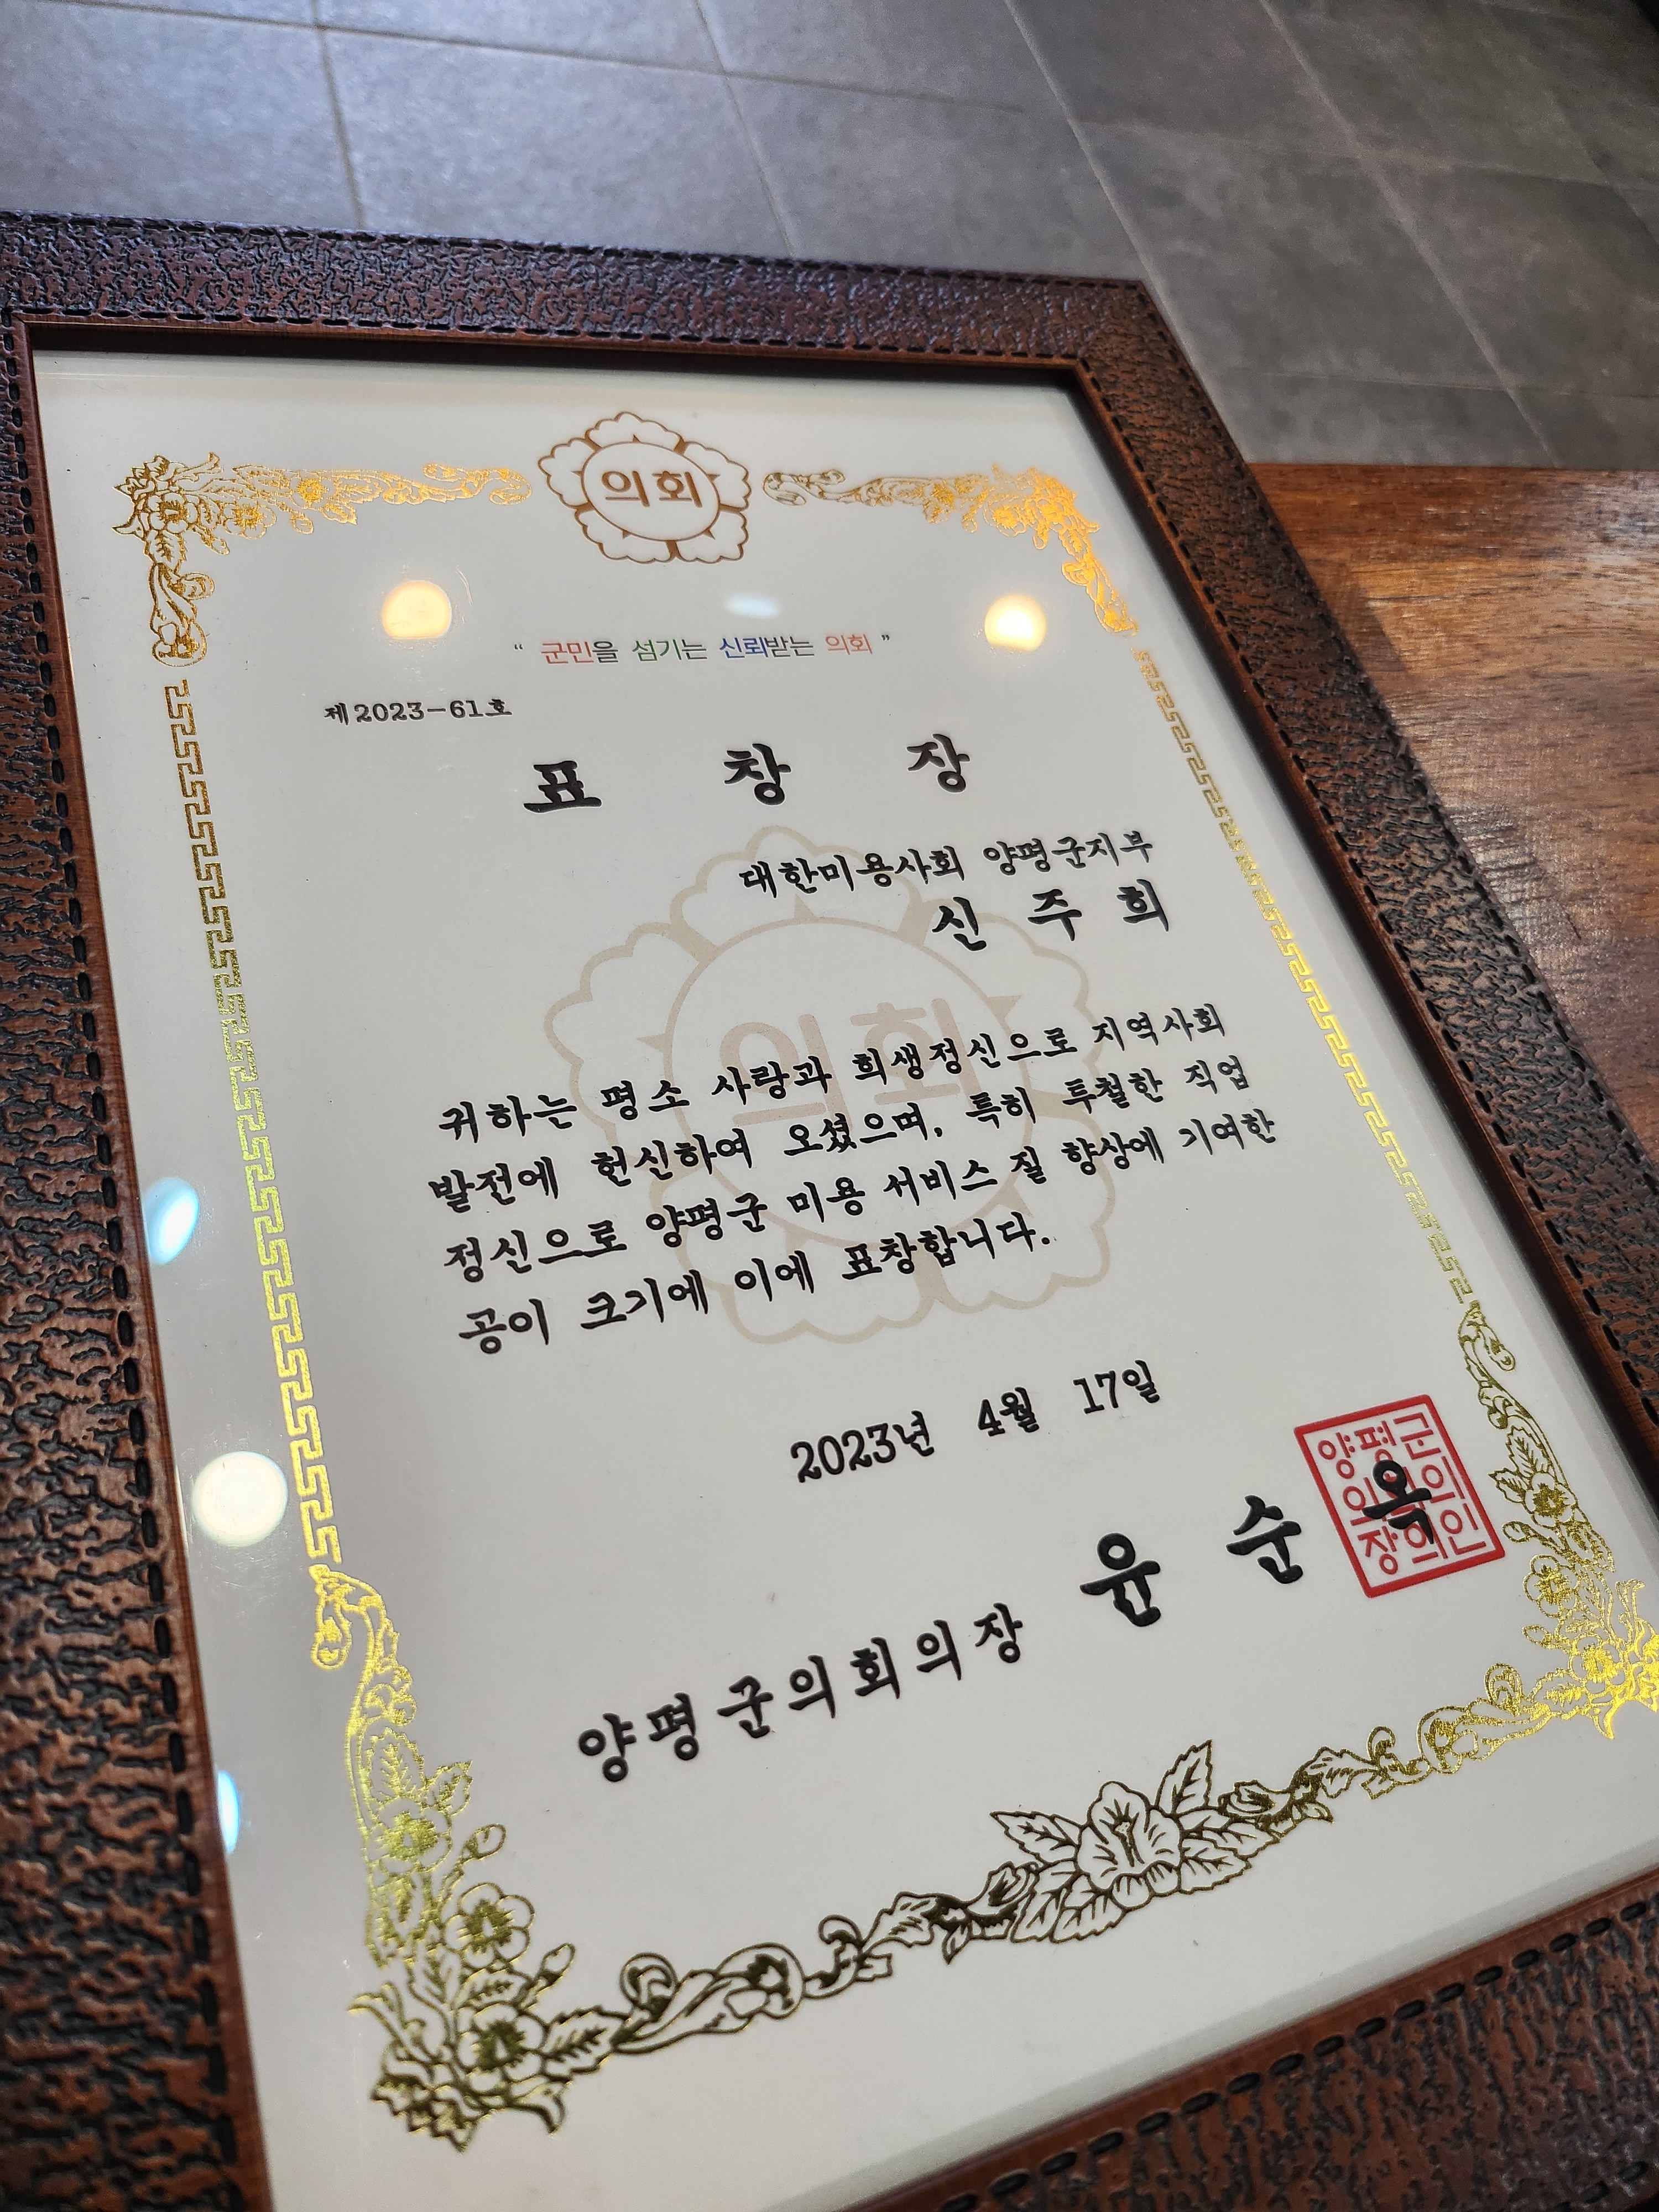 의회
“ 군민을 섬기는 신뢰받는 의회 ”
제2023-61호
표 창 장
대한미용사회 양평군지부
신 주 희
의회
귀하는 평소 사랑과 희생정신으로 지역사회
발전에 헌신하여 오셨으며, 특히 투철한 직업
정신으로 양평군 미용 서비스 질 향상에 기여한
공이 크기에 이에 표창합니다.
2023년 4월 17일
양평군의회의장 윤 순 옥
양평군
의회의
장의인